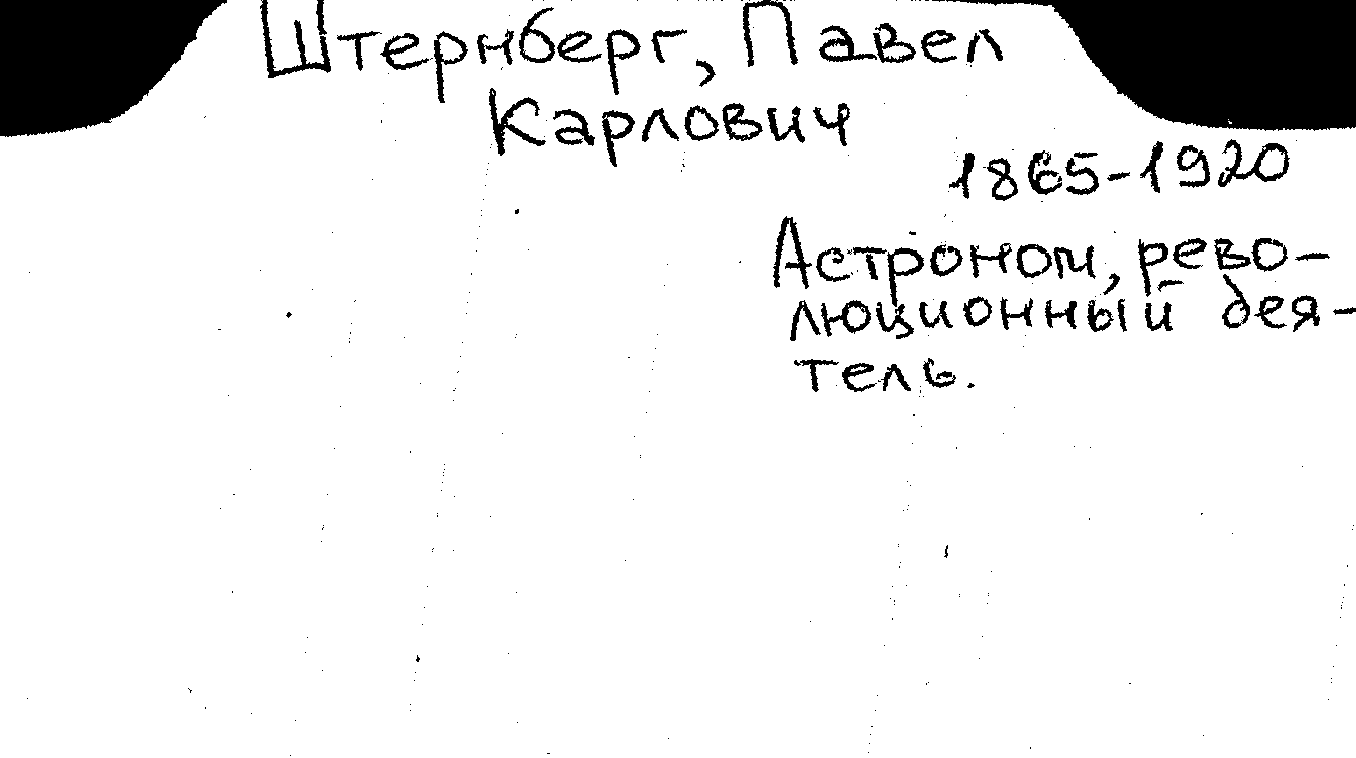 Штернберг, Павел
Карлович
1865-1920
Астроном, рево-
люционный дея-
тель.